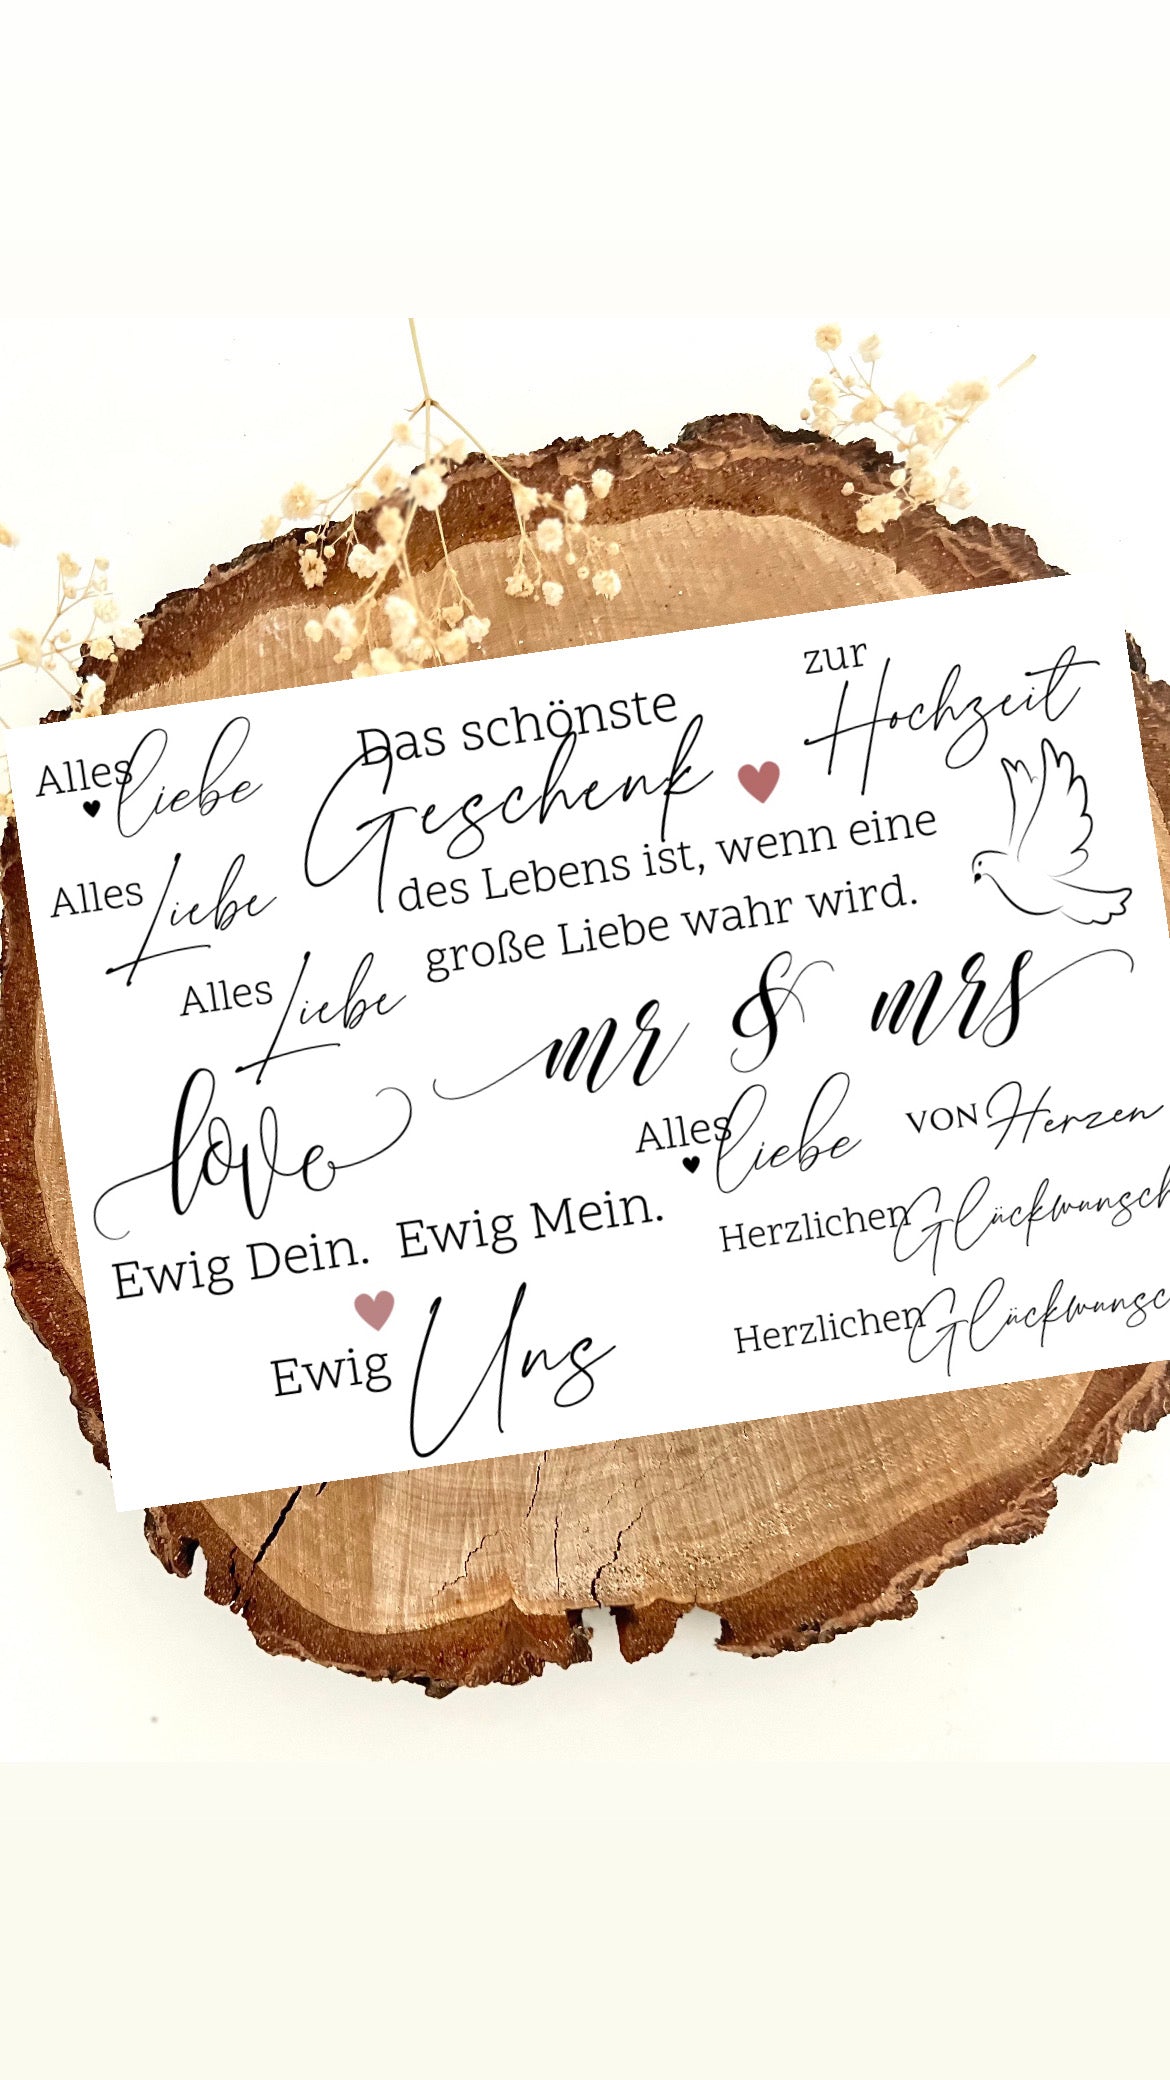 Alles liebe
Das schönste
Geschenk
des Lebens ist, wenn eine
große Liebe wahr wird.
zur
Hochzeit
Alles Liebe
Alles Liebe
mr & mrs
love
Alles liebe
VON Herzen
Herzlichen Glückwunsch
Herzlichen Glückwunsc
Ewig Dein. Ewig Mein.
Ewig Uns